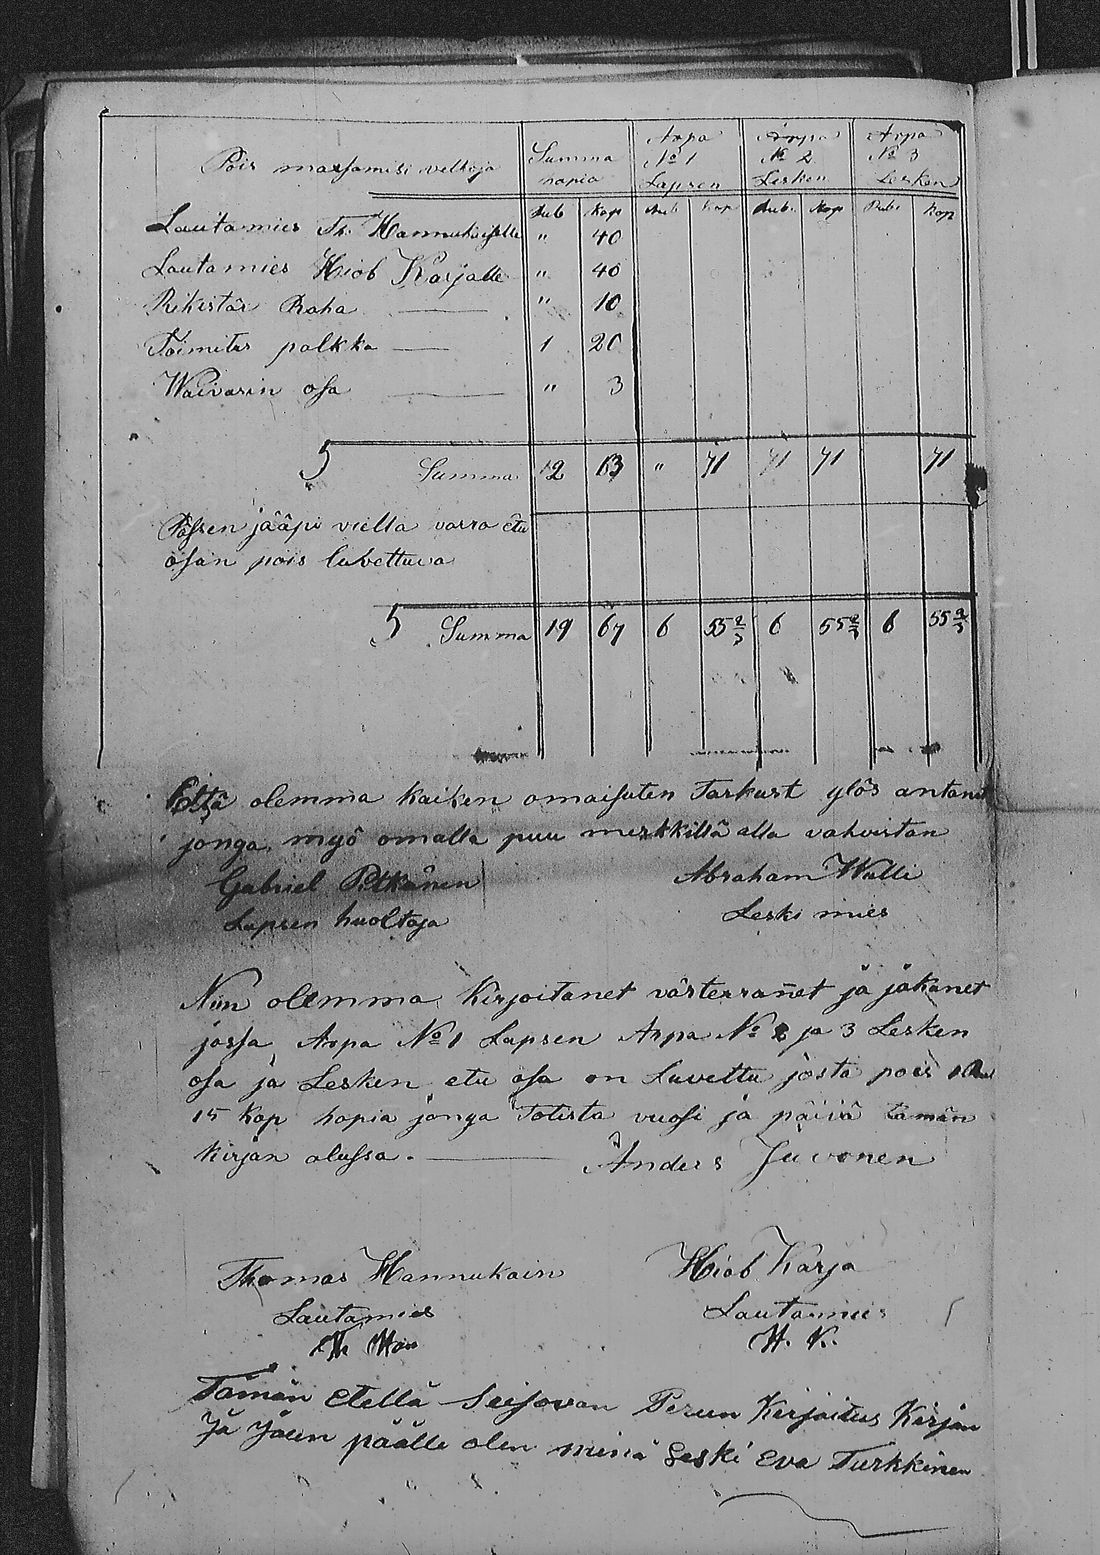 Pois maxsamisi velkoja
Summa hopia
Arpa No 1 Lapsen
Arpa No 2 Lesken
Arpa No 3 Lesken
Rub Kop Rub Kop Rub. Kop Rub. Kop
Lautamies Th. Hannukaiselle " 40
Lautamies Hiob Karjalle " 40
Rikistär Raha " 10
Toimitus palkka 1 20
Waivasin osa " 3
Summa 12 13 " 71 71 71 71
jääpi viella varra etu
osan pois luvettuva
Summa 19 67 6 55 2/3 6 55 2/3 6 55 2/3
Että olemma kaiken omaisuten Tarkast ylös antanet
jonga myö omalla puu merkkillä alla vahvistan
Gabriel Pitkänen Abraham Walli
Lapsen huoltaja Leski mies
Niin olemma Kirjoitanet värterranet ja jakanet
jossa Arpa No 1 Lapsen Arpa No 2 ja 3 Lesken
osa ja Lesken etu osa on Luvettu josta pois
15 Kop hopia jonga Totista vuosi ja päivä tämän
Kirjan alussa. Anders Juvonen
Thomas Hannukain Hiob Karja
Lautamies Lautamies
H. K.
Tämän etellä Seisovan Perun Kirjoitus Kirjan
Jä Jäen päälle olen minä Leski Eva Turkkinen